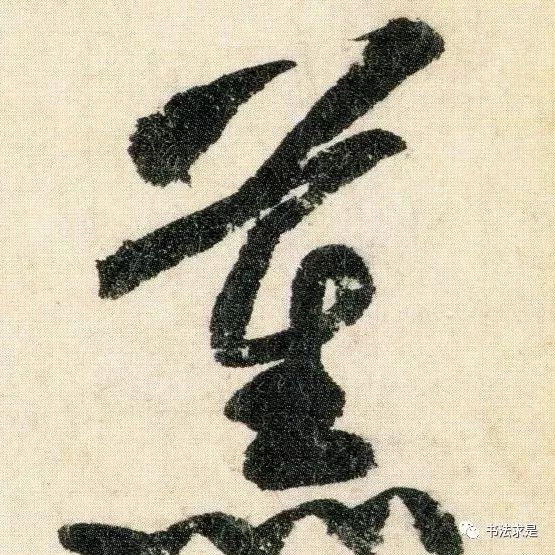 薰
书法求是